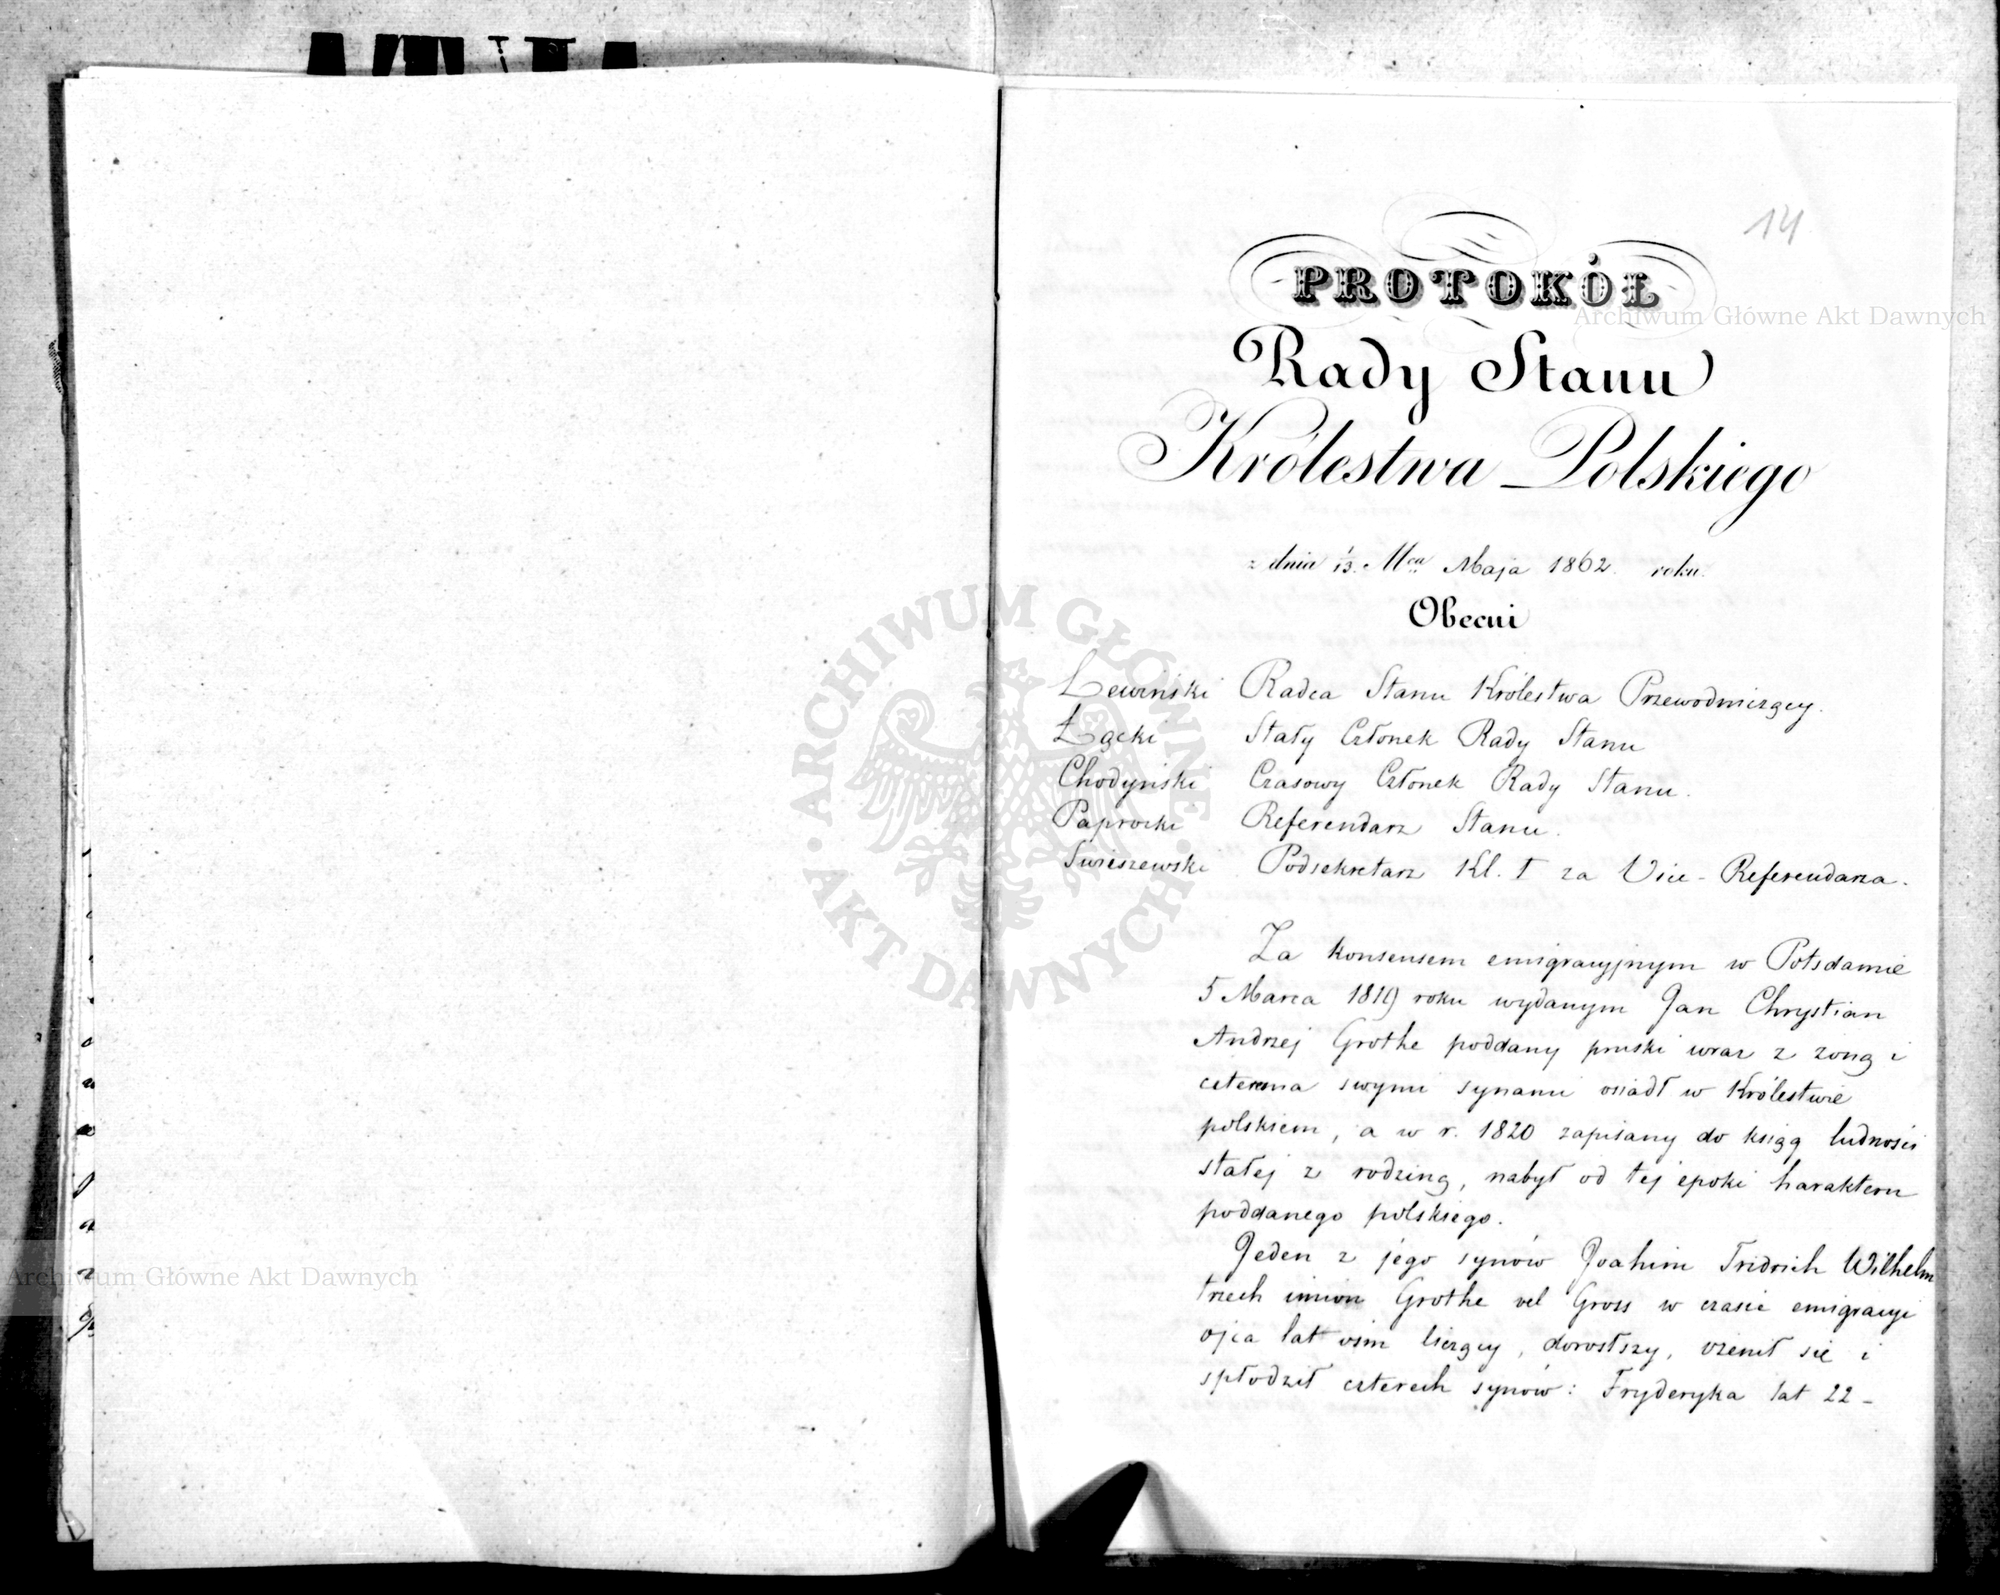 14
PROTOKÓŁ
Rady Stanu
Królestwa Polskiego
z dnia 1/13. Mca Maja 1862. roku.
Obecni
Łewiński Radca Stanu Królestwa Przewodniczący.
Łącki Stały Członek Rady Stanu
Chodyński Czasowy Członek Rady Stanu.
Paprocki Referendarz Stanu.
Swieszewski Podsekretarz Kl. I za Vice-Referendarza.
Za konsensem emigracyjnym w Potsdamie
5 Marca 1819 roku wydanym Jan Chrystian
Andrzej Grothe poddany pruski wraz z zoną i
czterma swymi synami osiadł w Królestwie
polskiem, a w r. 1820 zapisany do ksiąg ludności
stałej z rodziną, nabył od tej epoki harakteru
poddanego polskiego.
Jeden z jego synów Joahim Fridrich Wilhelm
trzech imion Grothe vel Gross w czasie emigracyi
ojca lat ośm liczący, dorosłszy, ożenił się i
spłodził czterech synów: Fryderyka lat 22-
Archiwum Główne Akt Dawnych
Archiwum Główne Akt Dawnych
ARCHIWUM GŁÓWNE · AKT DAWNYCH ·